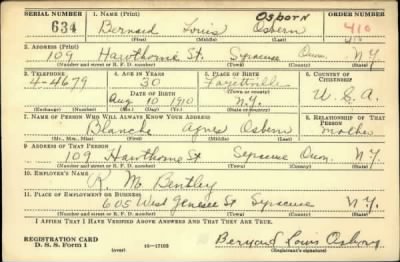 SERIAL NUMBER
1. NAME (Print)
ORDER NUMBER
OSBORN
634
Bernard Louis Osborn
410
(First) (Middle) (Last)
2. ADDRESS (Print)
109 Hawthorne St. Syracuse Onon. N.Y.
(Number and street or R. F. D. number) (Town) (County) (State)
3. TELEPHONE
4. AGE IN YEARS
5. PLACE OF BIRTH
6. COUNTRY OF CITIZENSHIP
4-4679
30
Fayetteville
DATE OF BIRTH
(Town or county)
U.S.A.
Aug 10 1910
N.Y.
(Exchange) (Number)
(Mo.) (Day) (Yr.)
(State or country)
7. NAME OF PERSON WHO WILL ALWAYS KNOW YOUR ADDRESS
8. RELATIONSHIP OF THAT PERSON
Blanche Agnes Osborn
mother
(Mr., Mrs., Miss) (First) (Middle) (Last)
9. ADDRESS OF THAT PERSON
109 Hawthorne St Syracuse Onon. N.Y.
(Number and street or R. F. D. number) (Town) (County) (State)
10. EMPLOYER'S NAME
R. M. Bentley
11. PLACE OF EMPLOYMENT OR BUSINESS
605 West Genesee St Syracuse N.Y.
(Number and street or R. F. D. number) (Town) (County) (State)
I AFFIRM THAT I HAVE VERIFIED ABOVE ANSWERS AND THAT THEY ARE TRUE.
REGISTRATION CARD
D. S. S. Form 1
(over)
16—17105
Bernard Louis Osborn
(Registrant's signature)